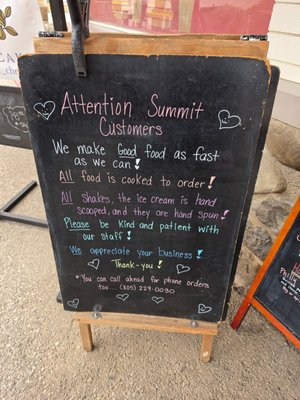 Attention Summit
Customers
We make Good food as fast
as we can!
All food is cooked to order!
All shakes, the ice cream is hand
scooped, and they are hand spun!
Please be Kind and patient with
our staff!
We appreciate your business!
Thank-you!
* You can call ahead for phone orders
too... (205) 229-0030